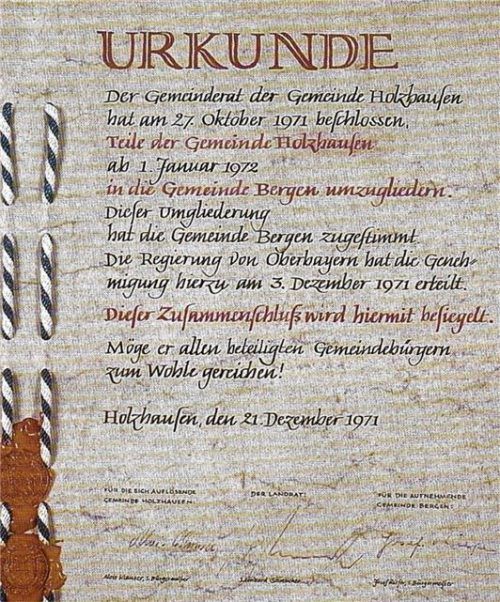 URKUNDE
Der Gemeinderat der Gemeinde Holzhauſen
hat am 27. Oktober 1971 beſchloſſen,
Teile der Gemeinde Holzhauſen
ab 1. Januar 1972
in die Gemeinde Bergen umzugliedern.
Dieſer Umgliederung
hat die Gemeinde Bergen zugeſtimmt.
Die Regierung von Oberbayern hat die Geneh-
migung hierzu am 3. Dezember 1971 erteilt.
Dieſer Zuſammenſchluß wird hiermit beſiegelt.
Möge er allen beteiligten Gemeindebürgern
zum Wohle gereichen!
Holzhauſen, den 21. Dezember 1971
FÜR DIE SICH AUFLÖSENDE GEMEINDE HOLZHAUSEN:
DER LANDRAT:
FÜR DIE AUFNEHMENDE GEMEINDE BERGEN: